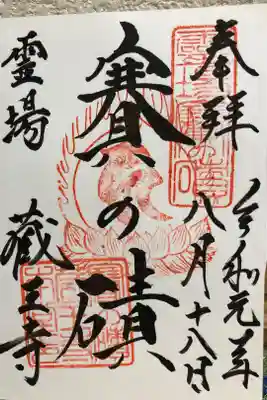 奉拝
令和元年
八月十八日
賽の磧
霊場
蔵王寺